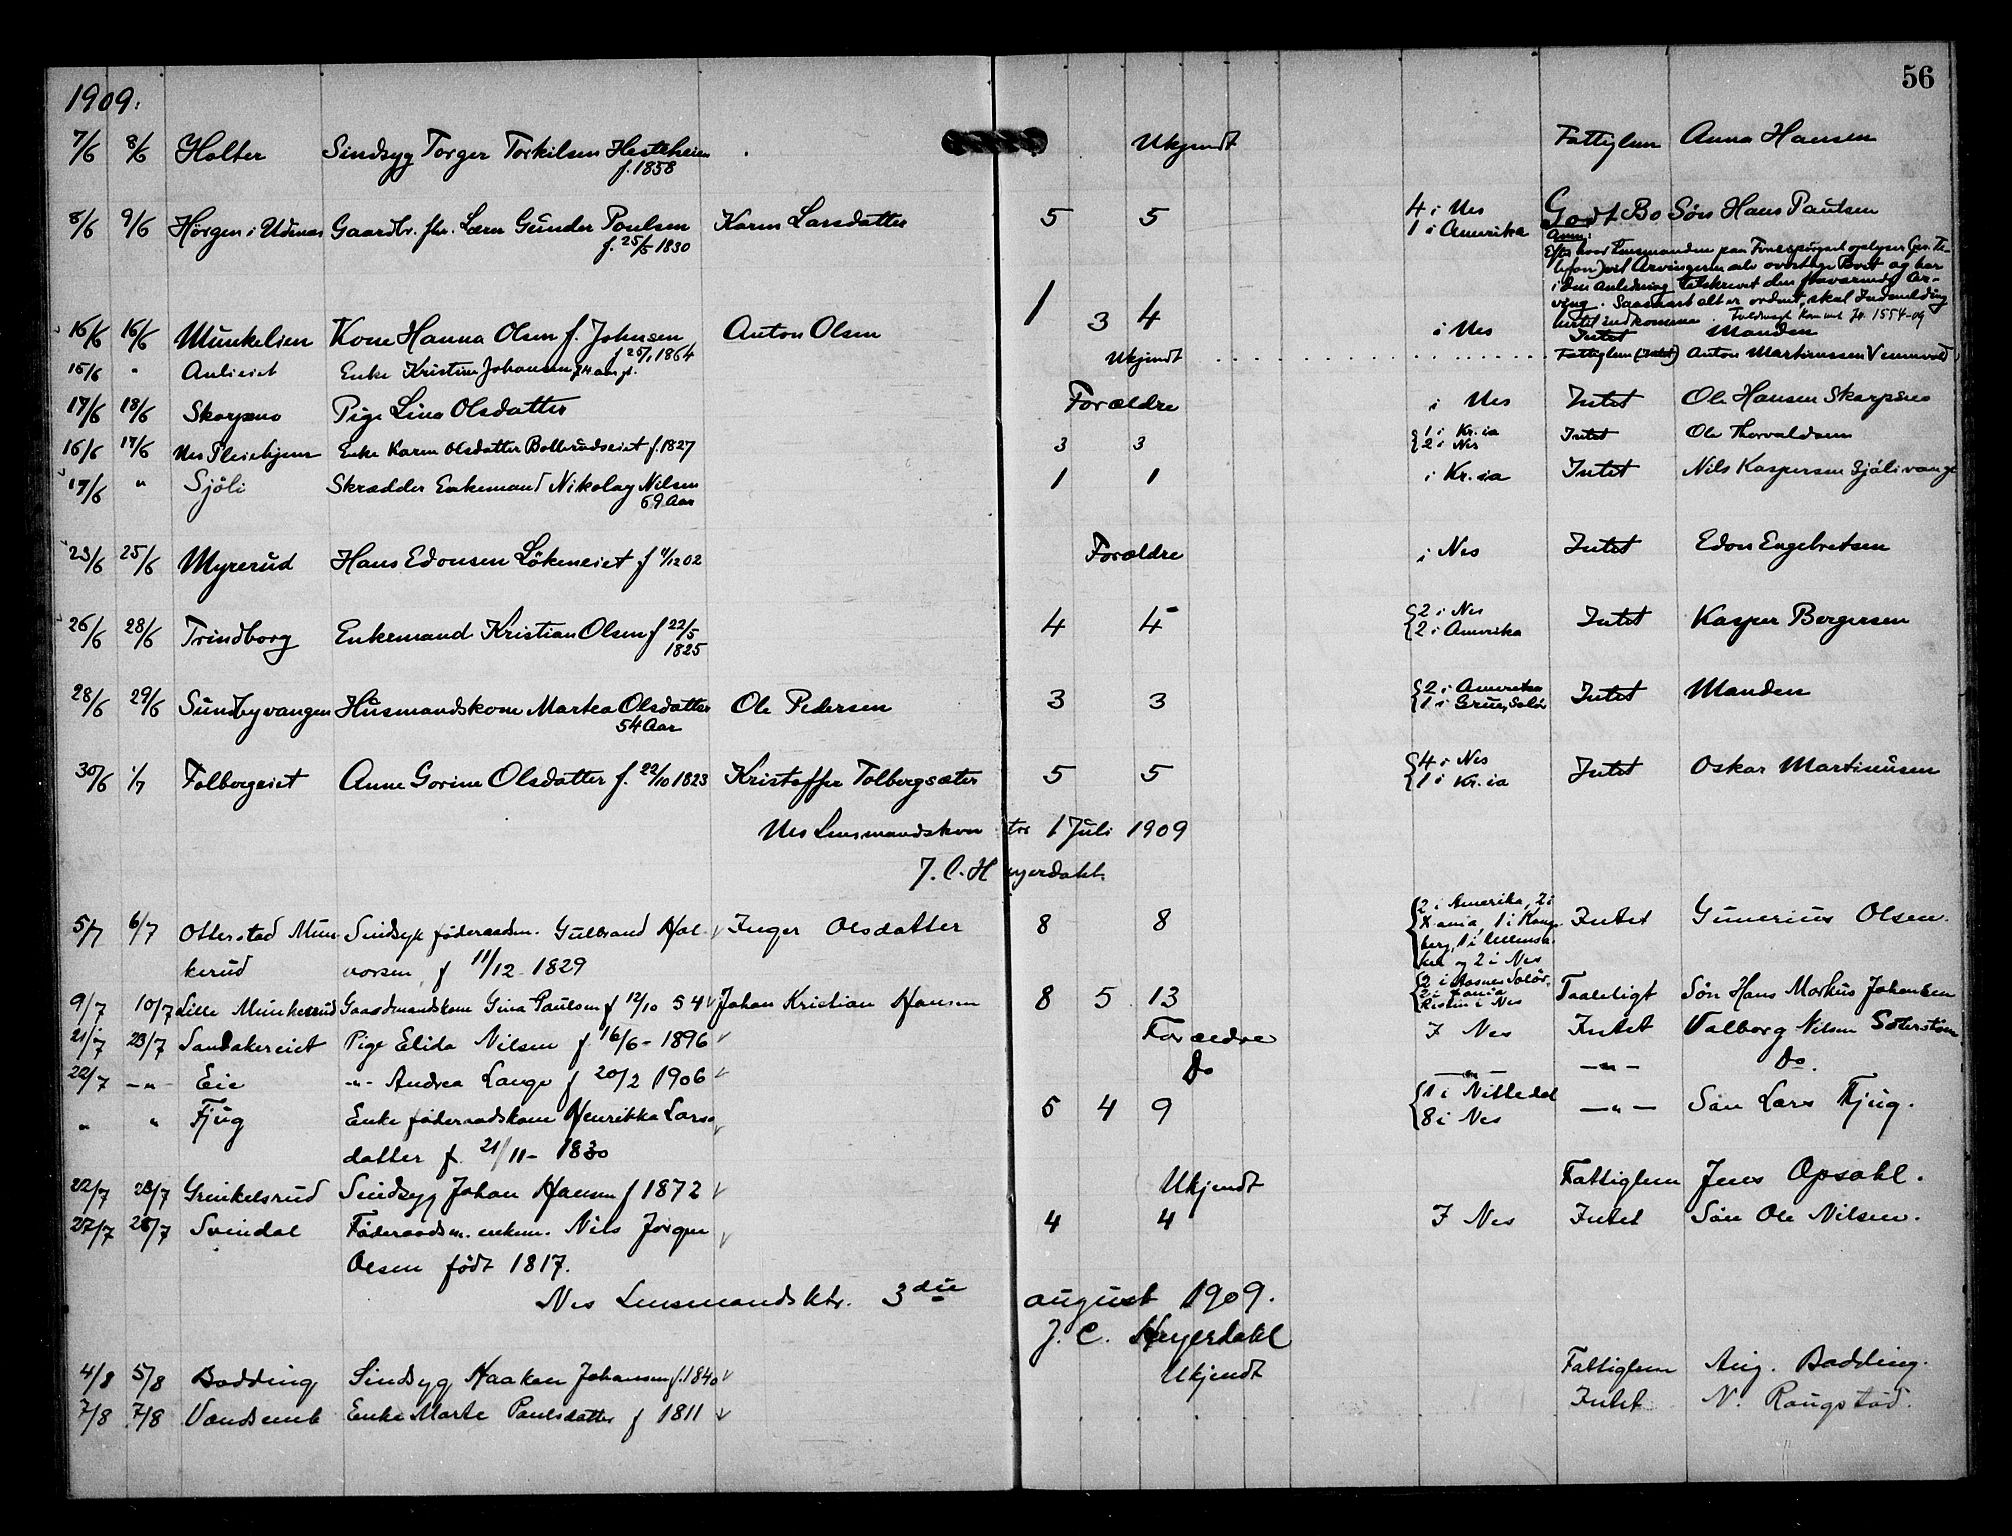 56
1909.
7/6 8/6 Holter Sindsyg Torger Torkilsen Hesteheien Ukjendt Fattiglem Anna Hansen
f. 1858
8/6 9/6 Hørgen i Udenes Gaardbr. fhr. Lærer Gunder Poulsen Karen Larsdatter 5 5 4 i Nes Godt Bo Søn Hans Paulsen
f. 25/5 1830 1 i Amerika
Anm:
Efter hvad Lensmanden paa Forespørgsel oplyser (pr. Te-
lefon) vil Arvingerne selv overtage Boet og har
i den Anledning tilskrevet den fraværende Ar-
ving. Saasnart alt er ordnet, skal Indmelding
hertil indkomme. Jr. 1554-09
16/6 16/6 Munkelien Kone Hanna Olsen f. Johnsen Anton Olsen 1 3 4 i Nes Intet Manden
f 25/1 1864
15/6 " Aulieiet Enke Kristine Johansen Ukjendt Fattiglem (Intet) Anton Martinussen Vennevold
17/6 18/6 Skarpsno Pige Lina Olsdatter Forældre i Nes Intet Ole Hansen Skarpsno
16/6 17/6 Nes Pleiehjem Enke Karen Olsdatter Bollerudseiet f. 1827 3 3 { 1 i Kr.ia Intet Ole Thorvaldsen
2 i Nes
17/6 " Sjöli Skrædder Enkemand Nikolay Nilsen 1 1 i Kr.ia Intet Nils Kaspersen Sjölivangen
69 Aar
23/6 25/6 Myrerud Hans Edonsen Lökeneiet f 4/12 02 Forældre i Nes Intet Edon Engebretsen
26/6 28/6 Trindborg Enkemand Kristian Olsen f 22/5 4 4 { 2 i Nes Intet Kasper Bergersen
1825 2 i Amerika
28/6 29/6 Sundbyvangen Husmandskone Martea Olsdatter Ole Pedersen 3 3 { 2 i Amerika Intet Manden
54 Aar 1 i Grue, Solör
30/6 1/7 Tolbergeiet Anne Gorine Olsdatter f. 22/10 1823 Kristoffer Tolbergsæter 5 5 { 4 i Nes Intet Oskar Martinusen
1 i Kr.ia
Nes Lensmandskontor 1 Juli 1909
J. C. Heyerdahl.
5/7 6/7 Otterstad Mun- Sindsyk føderaadsm. Gulbrand Hal- Inger Olsdatter 8 8 { 2 i Amerika, 2 i Intet Gunerius Olsen.
kerud vorsen f 11/12 1829 Kania, 1 i Kongs-
berg, 1 i Ullensa-
ker og 2 i Nes
9/7 10/7 Lille Munkerud Gaardmandskone Gina Paulsen f 12/10 54 Johan Kristian Hansen 8 5 13 { 2 i Aasnes Solør, Taaleligt Søn Hans Markus Johansen
2 i Kania
Resten i Nes
21/7 23/7 Sandakereiet Pige Elida Nilsen f. 16/6 - 1896 Forældre I Nes Intet Valborg Nilsen Soterstøen
22/7 -"- Eie -"- Andrea Lange f 20/2 1906 Do -"- -"- Do.
" " Fjug Enke føderaadskone Henrikka Lars- 5 4 9 { 1 i Nittedal -"- Søn Lars Fjug.
datter f. 21/11 - 1830 8 i Nes
22/7 23/7 Grinkelsrud Sindsyg Johan Hansen f 1872 Ukjendt Fattiglem Jens Opsahl.
27/7 28/7 Svindal Føderaadsm. enkem. Nils Jørgen 4 4 I Nes Intet Søn Ole Nilsen.
Olsen født 1817.
Nes Lensmandsktr. 3die august 1909.
J. C. Heyerdahl
4/8 5/8 Bodding Sindsyg Haaken Johansen f. 1840 Ukjendt Fattiglem Aug. Bodding.
7/8 7/8 Vandsemb Enke Marte Paulsdatter f 1811 Intet N. Raugstad.